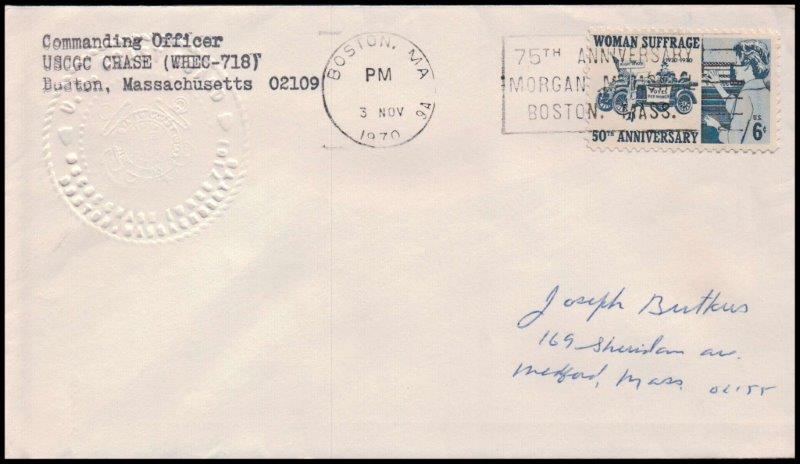 Commanding Officer
USCGC CHASE (WHEC-718)
Boston, Massachusetts 02109
BOSTON, MA
PM
3 NOV
1970
75TH ANNIVERSARY
MORGAN
BOSTON, MASS.
WOMAN SUFFRAGE
1920-1970
50TH ANNIVERSARY
U.S.
6¢
Joseph Butkus
169 Sheridan av.
Medford, Mass. 02155